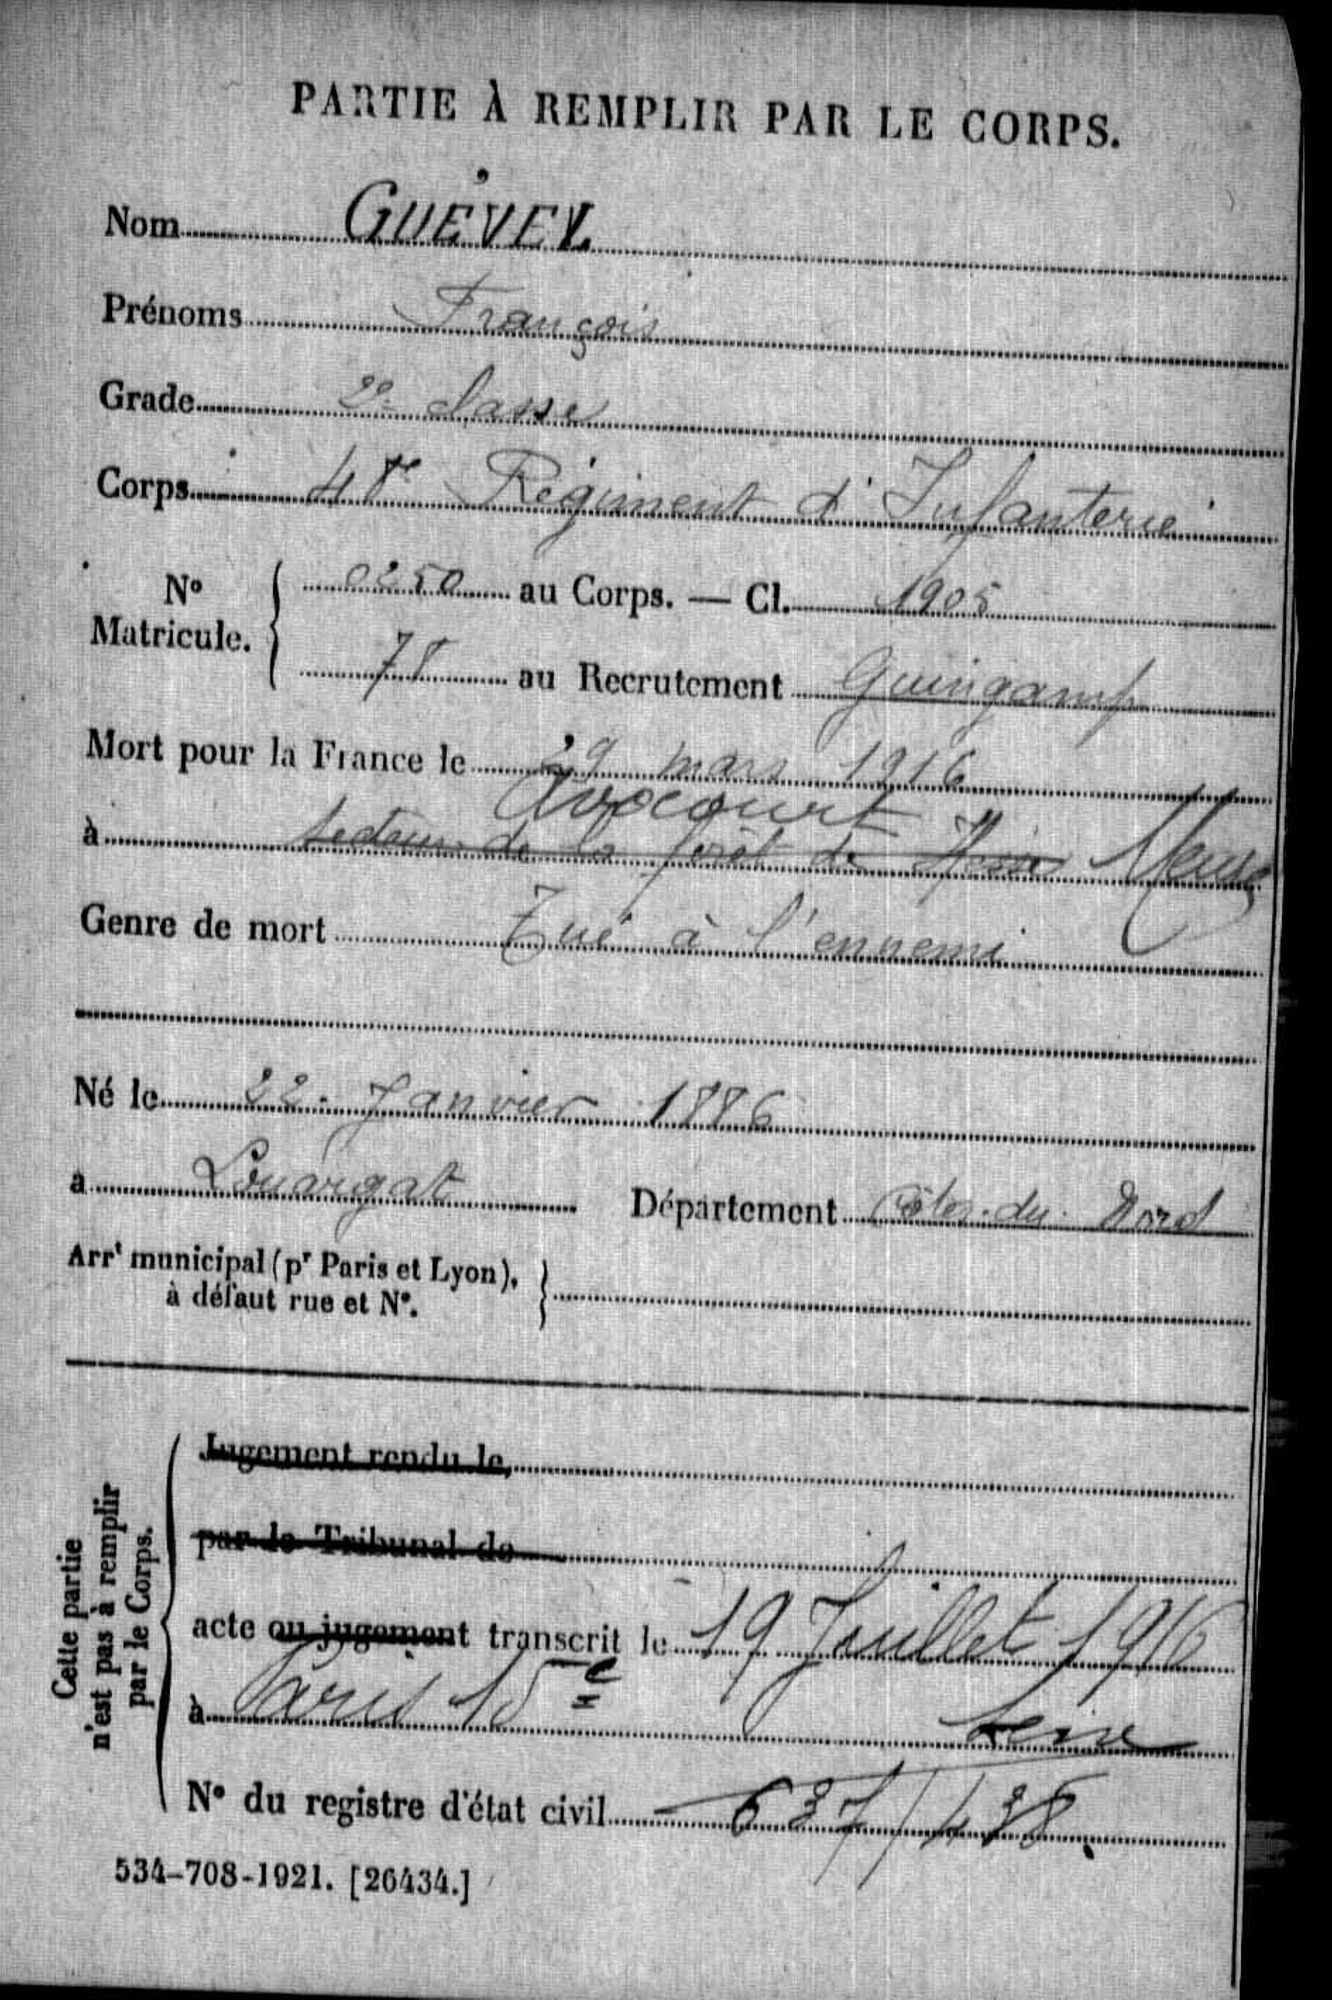 PARTIE À REMPLIR PAR LE CORPS.
Nom GUÉVEL
Prénoms François
Grade 2e classe
Corps 48e Régiment d'Infanterie
No Matricule. 0250 au Corps. — Cl. 1905
78 au Recrutement Guingamp
Mort pour la France le 29 mars 1916
Avocourt
à Secteur de la forêt de Hesse Meuse
Genre de mort Tué à l'ennemi
Né le 22 Janvier 1886
à Louargat Département Côtes-du-Nord
Arrt municipal (pr Paris et Lyon),
à défaut rue et No.
Cette partie
n'est pas à remplir
par le Corps.
Jugement rendu le,
par le Tribunal de
acte ou jugement transcrit le 19 Juillet 1916
à Paris 15e Seine
No du registre d'état civil 637/438.
534-708-1921. [26434.]